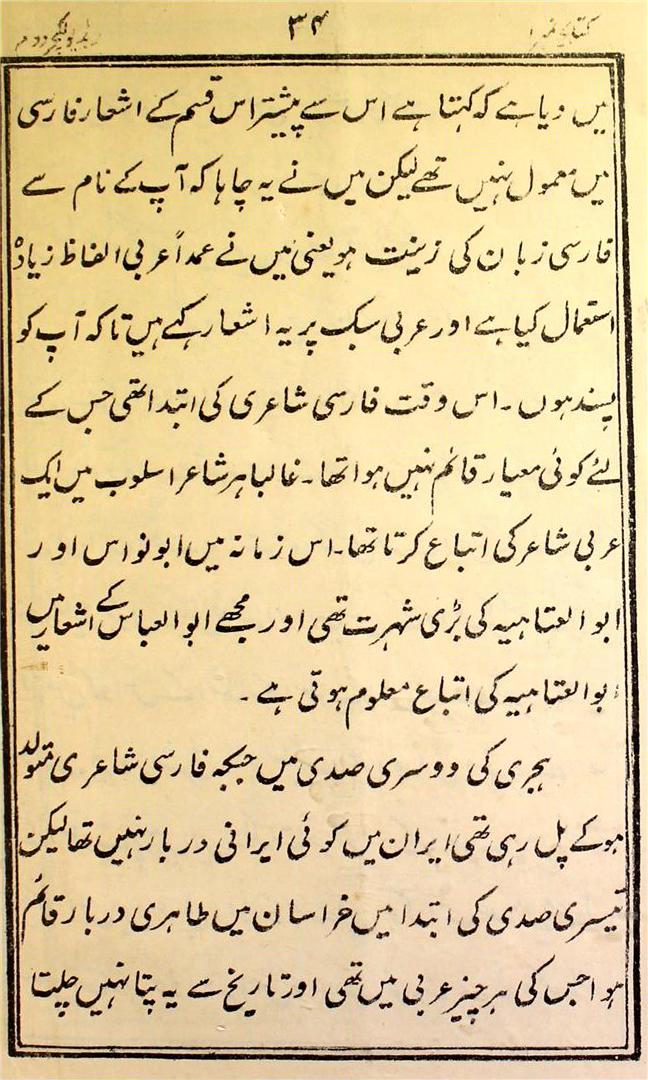 کتابی نمبر ۱ ۳۴ ریڈیو لکچر دوم
میں دیا ہے کہ کہتا ہے اس سے پیشتر اس قسم کے اشعار فارسی
میں معمول نہیں تھے لیکن میں نے یہ چاہا کہ آپ کے نام سے
فارسی زبان کی زینت ہو یعنی میں نے عمداً عربی الفاظ زیادہ
استعمال کیا ہے اور عربی سبک پر یہ اشعار کہے ہیں تاکہ آپ کو
پسند ہوں۔ اس وقت فارسی شاعری کی ابتدا تھی جس کے
لئے کوئی معیار قائم نہیں ہوا تھا۔ غالبا ہر شاعر اسلوب میں ایک
عربی شاعر کی اتباع کرتا تھا۔ اس زمانہ میں ابو نواس اور
ابو العتاہیہ کی بڑی شہرت تھی اور مجھے ابو العباس کے اشعار میں
ابو العتاہیہ کی اتباع معلوم ہوتی ہے۔
ہجری کی دوسری صدی میں جبکہ فارسی شاعری متولد
ہوکے پل رہی تھی ایران میں کوئی ایرانی دربار نہیں تھا لیکن
تیسری صدی کی ابتدا میں خراسان میں طاہری دربار قائم
ہوا جس کی ہر چیز عربی میں تھی اور تاریخ سے یہ پتا نہیں چلتا